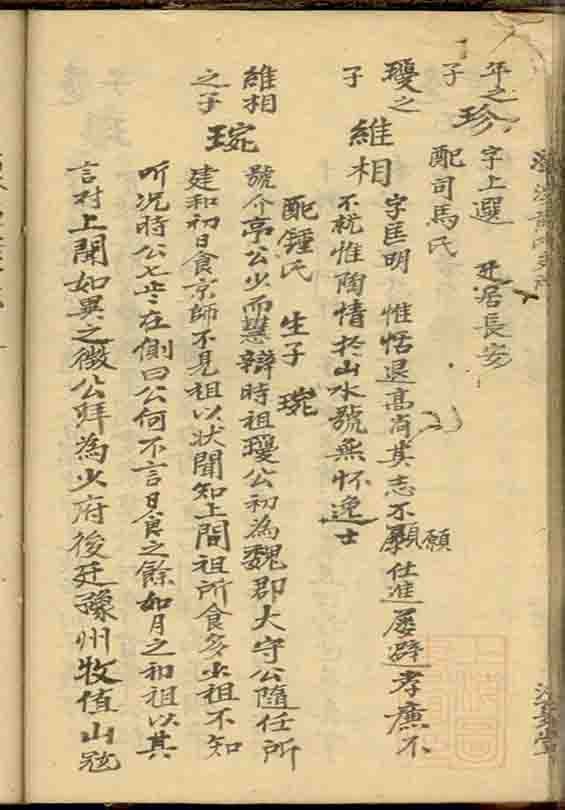 年之
子
珍
字上選 迁居長安
配司馬氏
瓊之
子
維相
字匡明 惟恬退高尚其志不願仕進屡辟孝廉不
願
不就惟陶情於山水號無怀逸士
配鍾氏 生子 琬
維相
之子
琬
號介亭公少而慧辯時祖瓊公初為魏郡大守公隨任所
建和初日食京師不見祖以狀聞知上問祖所食多少祖不知
所况時公七岁在側曰公何不言日食之餘如月之初祖以其
言对上聞如異之徵公拜為少府後迁豫州牧值山冦